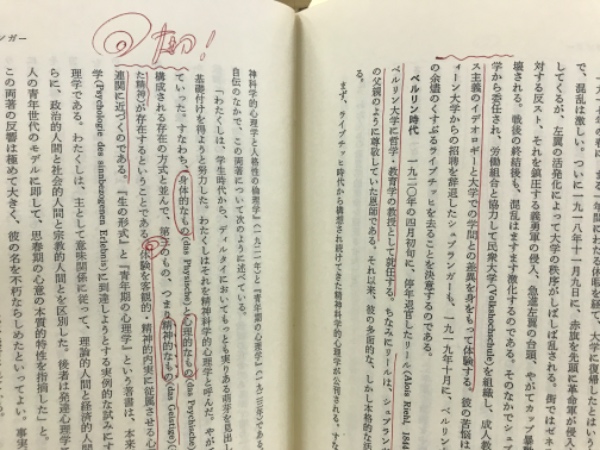 で、混乱は激しい。ついに一九一八年十一月九日に、赤旗を先頭に革命軍が侵入
してくるが、左翼の活発化によって大学の秩序がしばしば乱される。街ではゼネ
対する反スト、それを鎮圧する義勇軍の侵入、急進左翼の台頭、やがてカップ暴動
壊される。戦後の終結後も、混乱はますます激化するのである。そのなかでシュプ
学から委任され、労働組合と協力して民衆大学(Volkshochschule)を組織し、成人教
ス主義のイデオロギーと大学での学問との差異を身をもって体験する。彼の苦悩は
ィーン大学からの招聘を辞退したシュプランガーも、一九一九年十月に、ベルリン
の余燼のくすぶるライプチッヒを去ることを決意するのである。
ベルリン時代 一九二〇年の四月初旬に、停年退官したリール(Alois Riehl, 1844
ベルリン大学に哲学・教育学の教授として就任する。ちなみにリールは、シュプランガ
の父親のように尊敬していた恩師である。それ以来、彼の多面的な、しかし本格的な活
る。
まず、ライプチッヒ時代から構想され続けてきた精神科学的心理学が公刊される。すな
ンガー
大切!
神科学的心理学と人格性の倫理学』(一九二一年)と『青年期の心理学』(一九二四年)である。
自伝のなかで、この両著について次のように述べている。
「わたくしは、学生時代から、ディルタイにおいてもっとも実りある萌芽を見出し
基礎付けを得ようと努力した。わたくしはそれを精神科学的心理学と呼んだ。やが
ていった。すなわち、身体的なもの(das Physische)と心理的なもの(das Psychische)
構成される存在の方式と並んで、第三のもの、つまり精神的なもの(das Geistige)
た精神)が存在するということである。体験を客観的・精神的内実に従属させる心
連関に近づくのである。『生の形式』と『青年期の心理学』という著書は、本来
学(Psychologie des sinnbezogenen Erlebnis)に到達しようとする実例的な試みにす
理学である。わたくしは、主として意味関係に従って、理論的人間と経済的人間
らに、政治的人間と社会的人間と宗教的人間とを区別した。後者は発達心理学
人の青年世代のモデルに即して、思春期の心意の本質的特性を指摘した」と。
この両著の反響は極めて大きく、彼の名を不朽ならしめたといってよい。事実